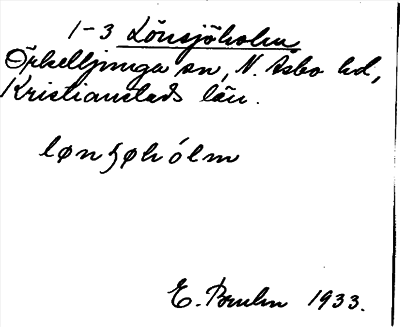 1-3 Lönsjöholm
Örkelljunga sn, N. Åsbo hd,
Kristianstads län.
lønʃøhólm
E. Bruhn 1933.